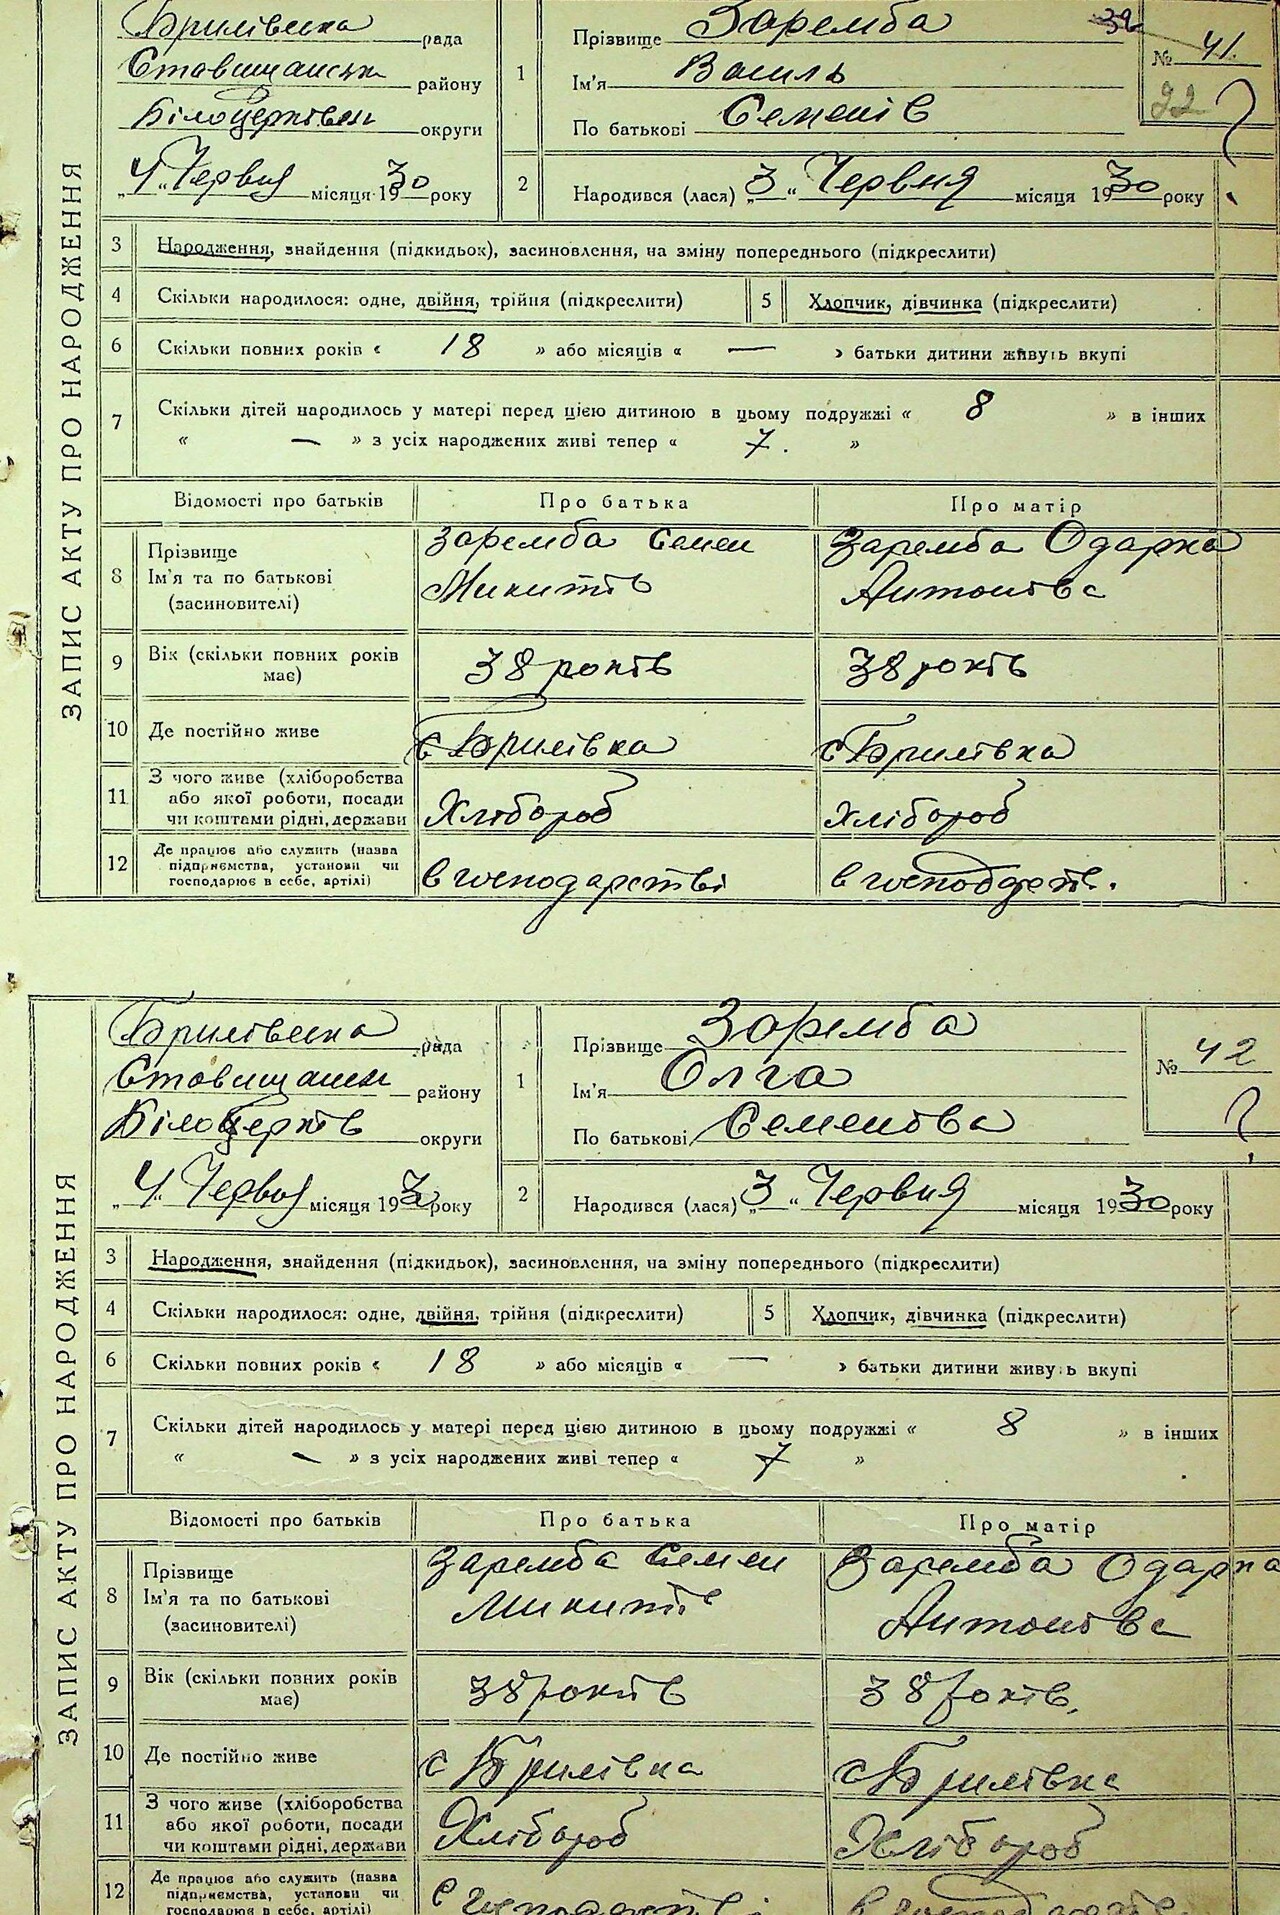 ЗАПИС АКТУ ПРО НАРОДЖЕННЯ
Брилівська рада
Ставищанськ району
Білоцерківськ округи
„4“ Червня місяця 1930 року
1
Прізвище Заремба
Ім'я Василь
По батькові Семенів
№ 41
22
2
Народився (лася) „3“ Червня місяця 1930 року
3 Народження, знайдення (підкидьок), засиновлення, на зміну попереднього (підкреслити)
4 Скільки народилося: одне, двійня, трійня (підкреслити) 5 Хлопчик, дівчинка (підкреслити)
6 Скільки повних років « 18 » або місяців « — » батьки дитини живуть вкупі
7 Скільки дітей народилось у матері перед цією дитиною в цьому подружжі « 8 » в інших
« — » з усіх народжених живі тепер « 7. »
Відомості про батьків Про батька Про матір
8 Прізвище Ім'я та по батькові (засиновителі)
Заремба Семен Микитів
Заремба Одарка Антонівa
9 Вік (скільки повних років має) 38 років 38 років
10 Де постійно живе с Брилівка с Брилівка
11 З чого живе (хліборобства або якої роботи, посади чи коштами рідні, держави Хлібороб Хлібороб
12 Де працює або служить (назва підприємства, установи чи господарює в себе, артілі) в господарстві в господарств.
ЗАПИС АКТУ ПРО НАРОДЖЕННЯ
Брилівська рада
Ставищанськ району
Білоцерків округи
„4“ Червня місяця 1930 року
1
Прізвище Заремба
Ім'я Олга
По батькові Семенова
№ 42
2
Народився (лася) „3“ Червня місяця 1930 року
3 Народження, знайдення (підкидьок), засиновлення, на зміну попереднього (підкреслити)
4 Скільки народилося: одне, двійня, трійня (підкреслити) 5 Хлопчик, дівчинка (підкреслити)
6 Скільки повних років « 18 » або місяців « — » батьки дитини живуть вкупі
7 Скільки дітей народилось у матері перед цією дитиною в цьому подружжі « 8 » в інших
« — » з усіх народжених живі тепер « 7 »
Відомості про батьків Про батька Про матір
8 Прізвище Ім'я та по батькові (засиновителі)
Заремба Семен Микитів
Заремба Одарка Антонівa
9 Вік (скільки повних років має) 38 років 38 років,
10 Де постійно живе с Брилівка с Брилівка
11 З чого живе (хліборобства або якої роботи, посади чи коштами рідні, держави Хлібороб Хлібороб
12 Де працює або служить (назва підприємства, установи чи господарює в себе, артілі)